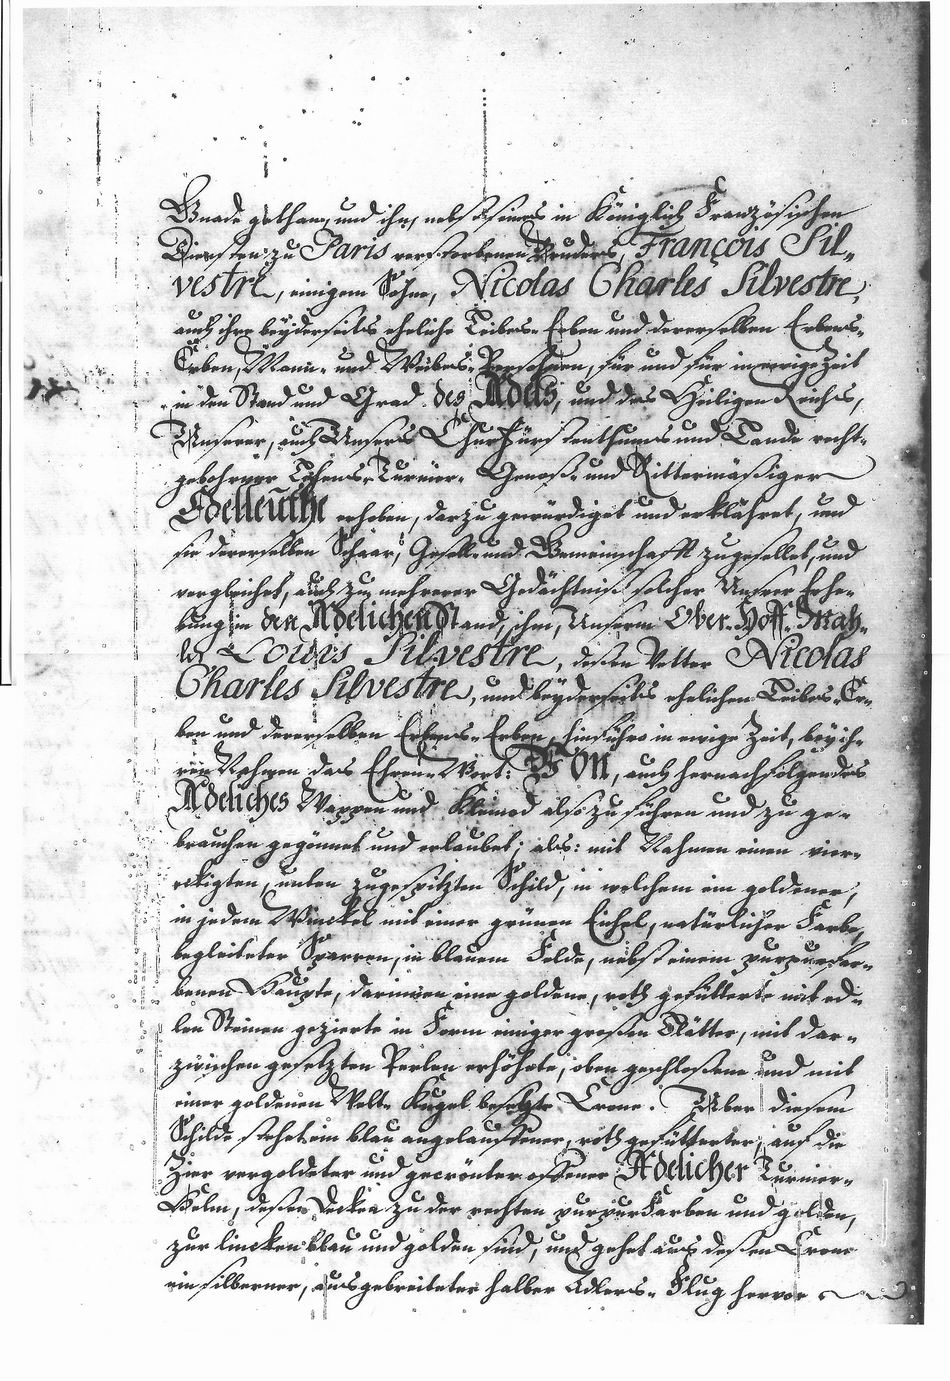 Gnade gethan, und ihn, nebst seines in Königlich Französischen
Diensten zu Paris verstorbenen Bruders, François Sil-
vestre, einigem Sohne, Nicolas Charles Silvestre,
auch ihre beyderseits eheliche Leibes-Erben und dererselben Erbens-
Erben, Mann- und Weibes-Persohnen, für und für in ewige Zeit
in den Stand und Grad des Adels, und des Heiligen Reichs,
Unserer, auch Unsers ChurFürstenthums und Lande recht-
gebohrner Lehens-Turnier-Genoß- und Rittermäßiger
Edelleuthe erhoben, darzu gewürdiget und erklähret, und
sie dererselben Schaar, Gesell- und Gemeinschafft zugesellet, und
vergleichet, auch zu mehrerer Gedächtniß solcher Unserer Erhe-
bung in den Adelichen Stand, ihm, Unserm Ober-Hoff-Mah-
ler Louis Silvestre, deßen Vetter Nicolas
Charles Silvestre, und beyderseits ehelichen Leibes-Er-
ben und dererselben Erbens-Erben, hinführo in ewige Zeit, bey ih-
ren Nahmen das Ehren-Wort: VON, auch hernachfolgendes
Adeliches Wappen und Kleinod also zu führen und zu ge-
brauchen gegönnet und erlaubet; als: mit Nahmen einen vier-
eckigten, unten zugespitzten Schild, in welchem ein goldener,
in jedem Winckel mit einer grünen Eichel, natürlicher Farbe,
begleiteter Sparren, in blauem Felde, nebst einem purpurfar-
benen Haupte, darinnen eine goldene, roth gefütterte mit ed-
len Steinen gezierte in Form einiger großen Blätter, mit dar-
zwischen gesetzten Perlen erhöhete, oben geschloßene und mit
einer goldenen Welt-Kugel besetzte Crone. Uber diesem
Schilde stehet ein blau angelauffener, roth gefütterter, auf die
Zier vergoldeter und gecrönter offener Adelicher Turnier-
Helm, deßen Decken zu der rechten purpurFarben und golden,
zur lincken blau und golden sind, und gehet aus deßen Crone
ein silberner, ausgebreiteter halber Adlers-Flug hervor